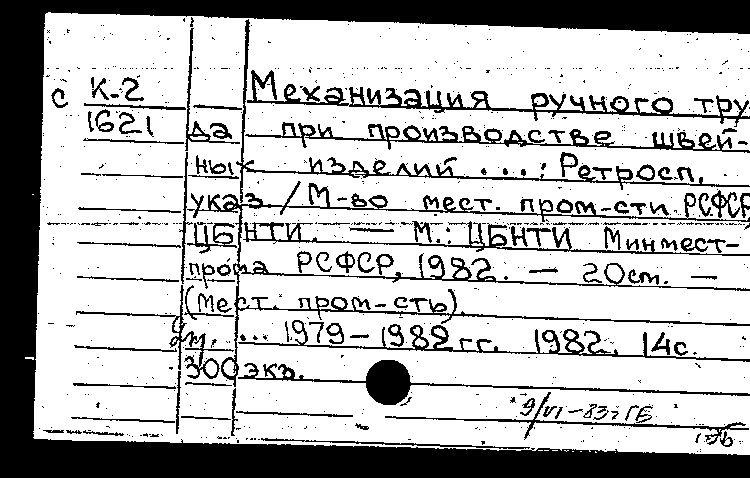 с К-2 Механизация ручного тру
1621 да при производстве швей-
ных изделий ...: Ретросп.
указ. / М-во мест. пром-сти РСФСР,
ЦБНТИ. — М.: ЦБНТИ Минмест-
прома РСФСР, 1982. — 20см. —
(Мест. пром-сть).
... 1979-1982гг. 1982. 14с.
300 экз.
9/VI-83г ГБ